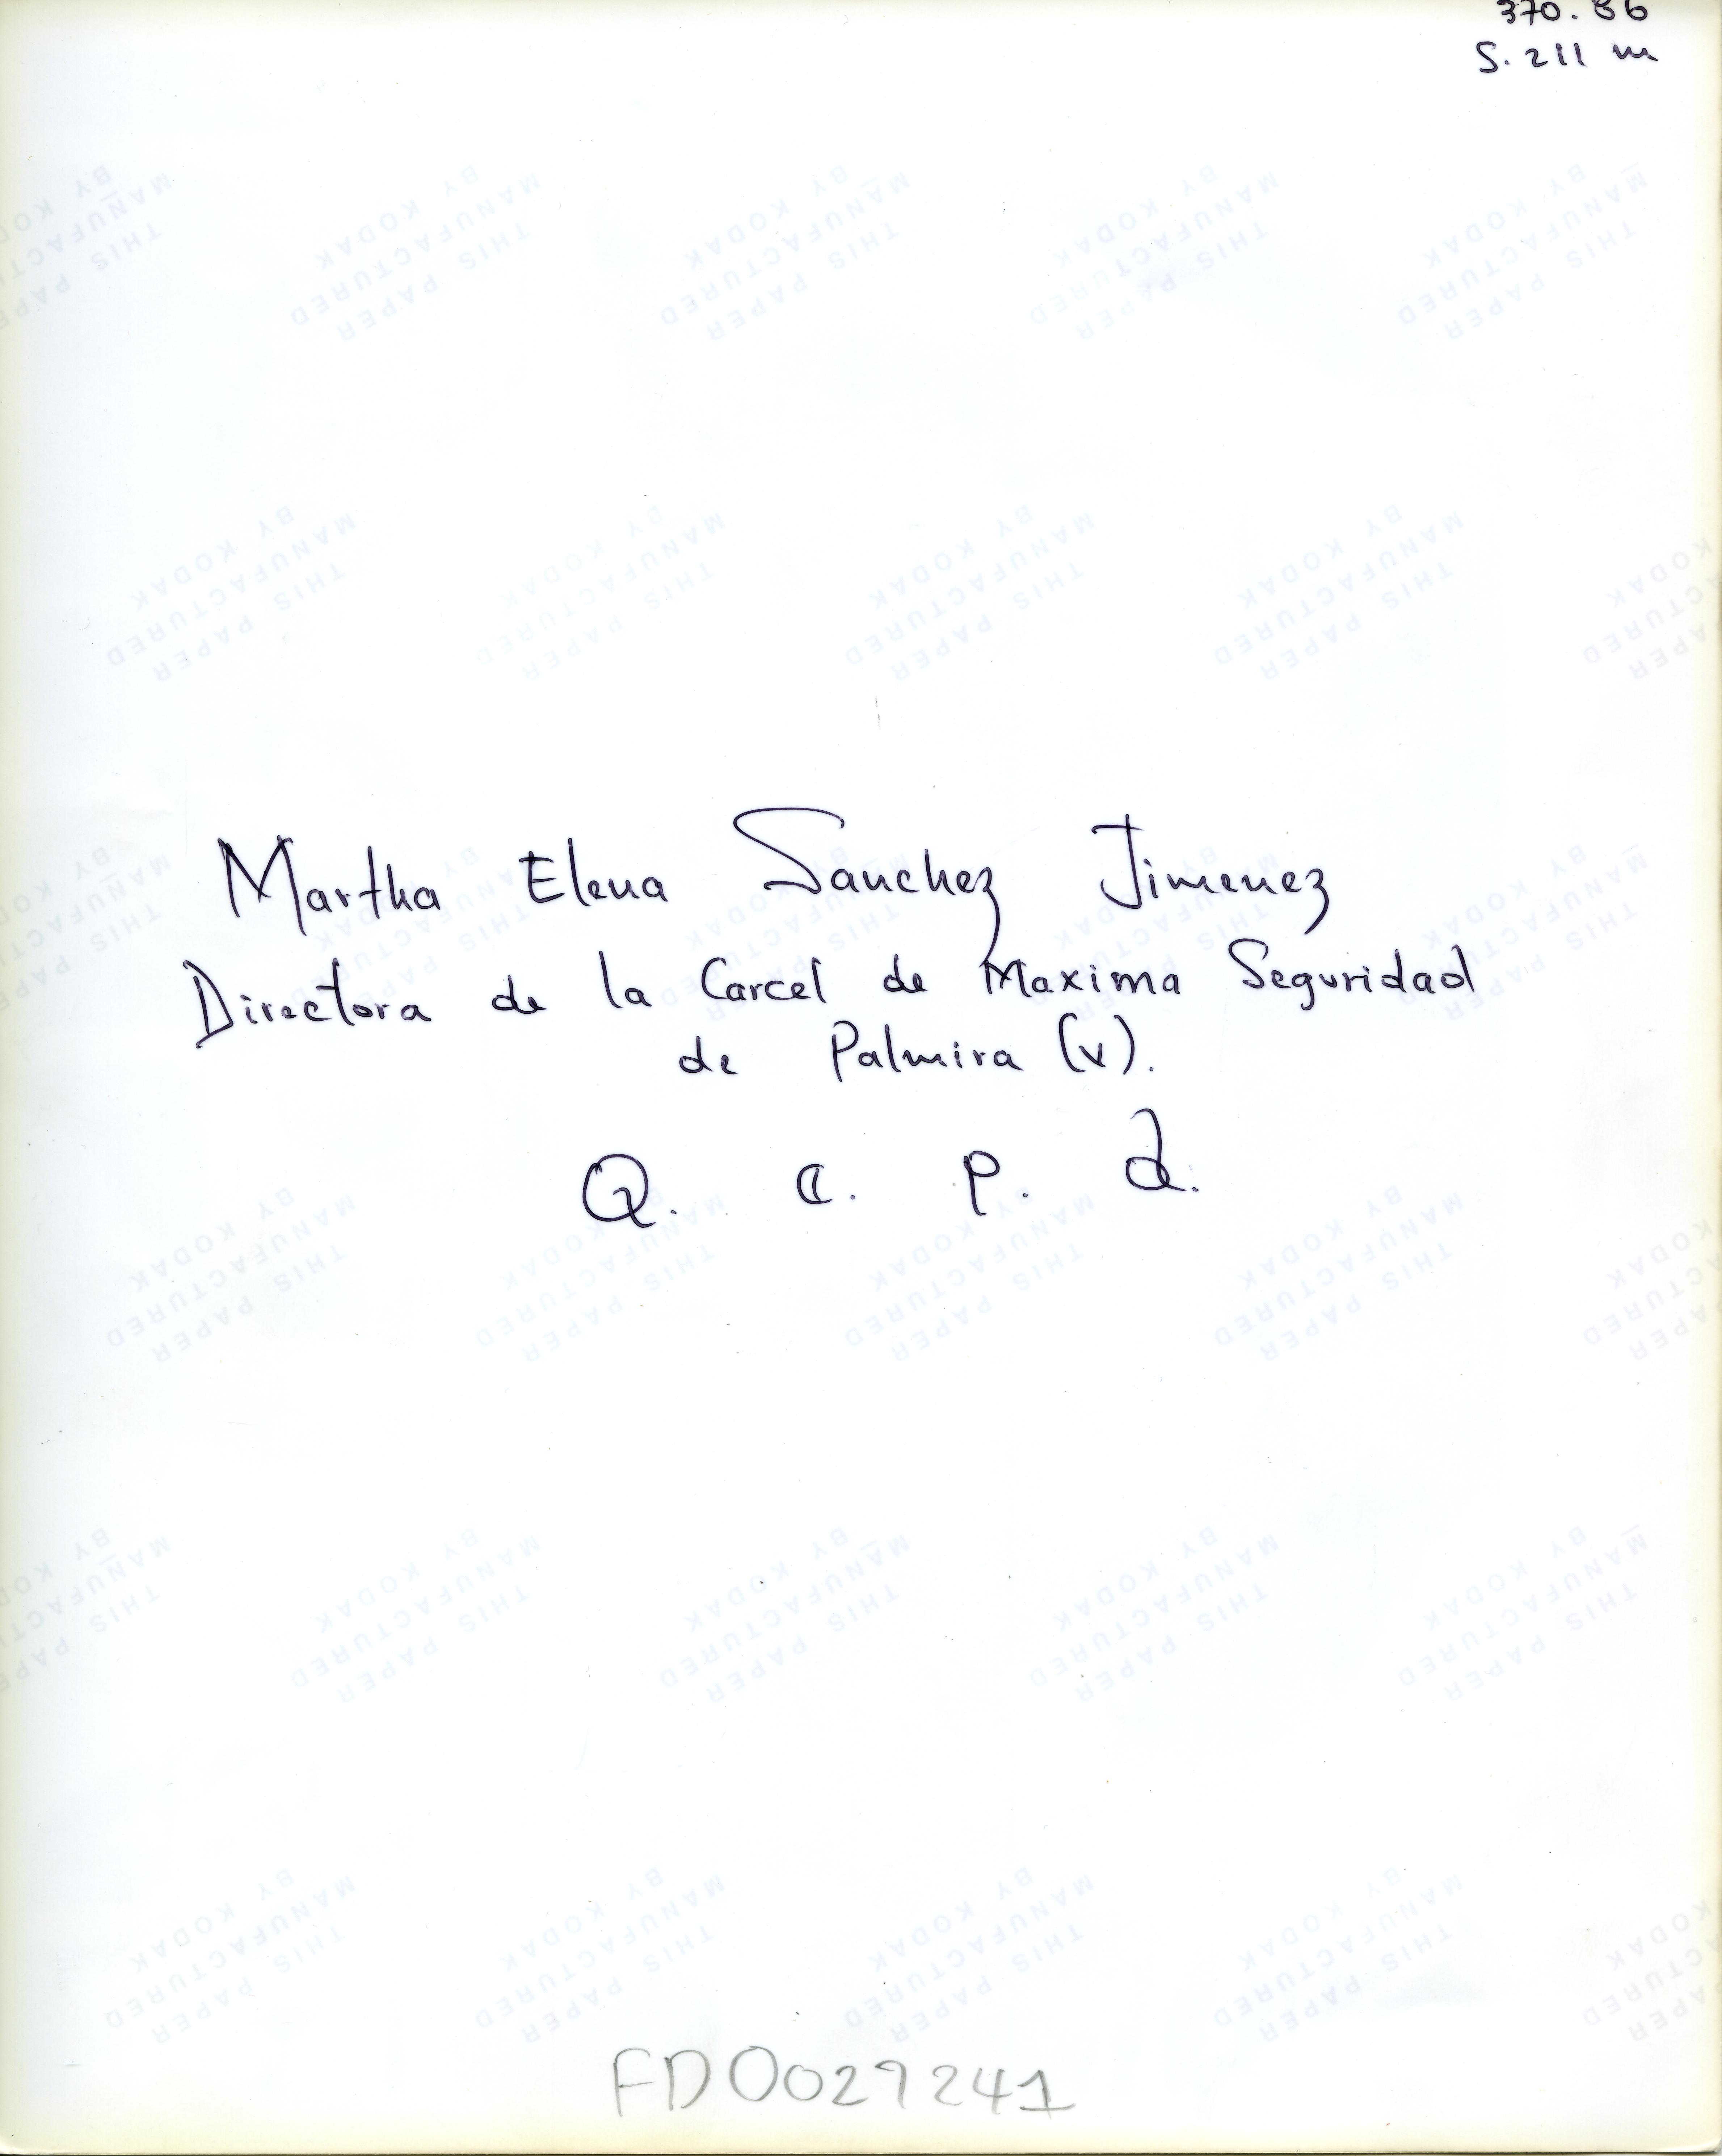 370.86
S. 211 m
Martha Elena Sanchez Jimenez
Directora de la Carcel de Maxima Seguridad
de Palmira (v).
Q. C. P. d.
FD0029241
THIS PAPER
MANUFACTURED
BY KODAK